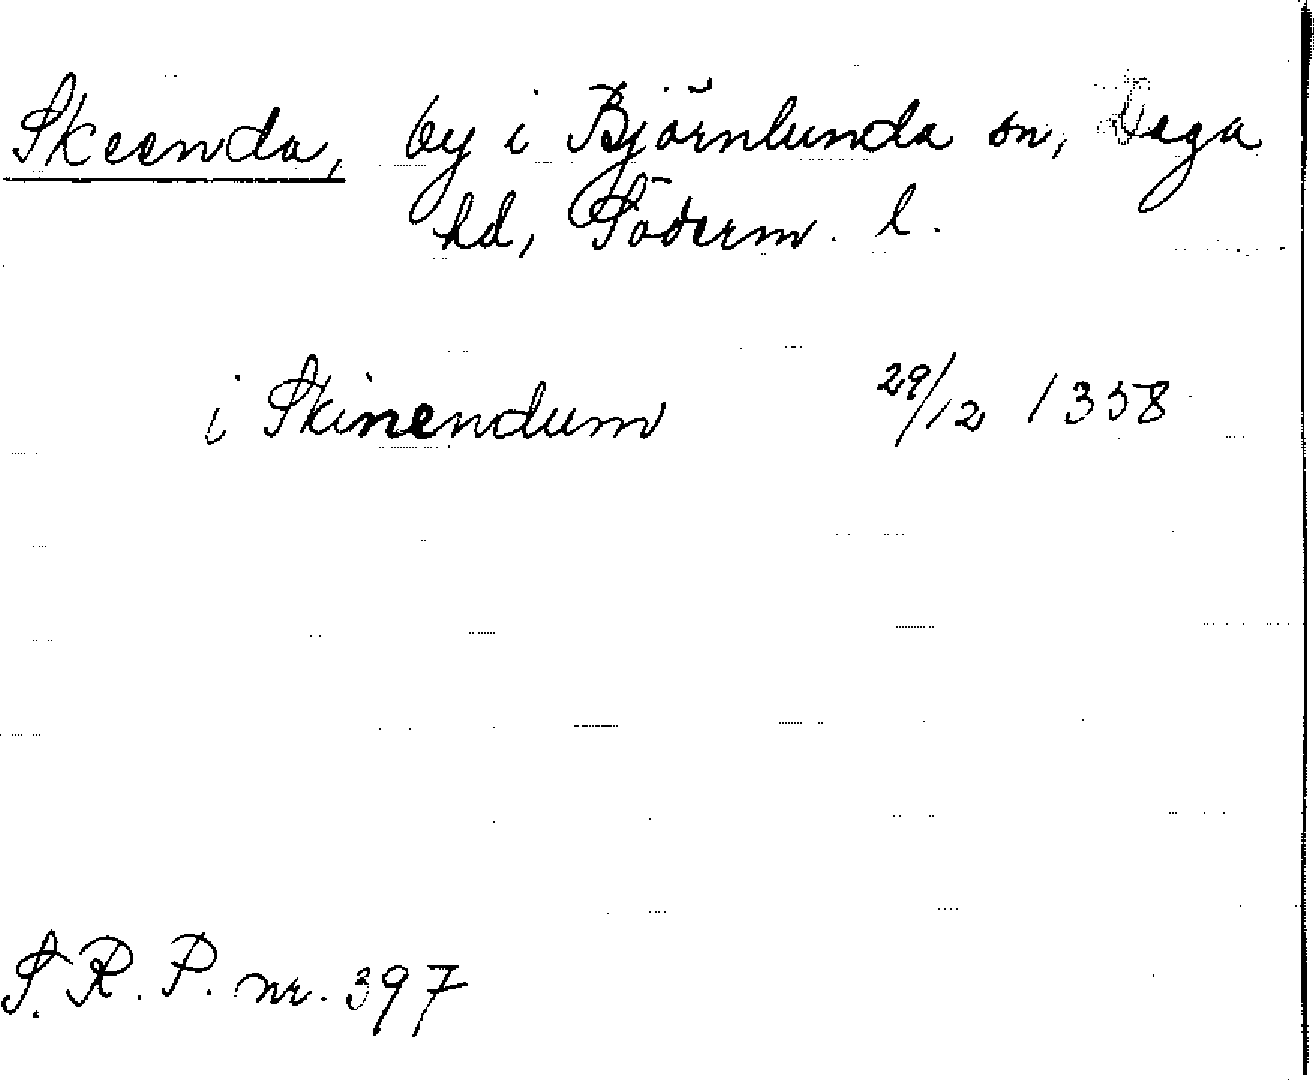 Skeenda, by i Björnlunda sn, Daga
hd, Söderm. l.
i Skinendum 29/12 1358
S. R. P. nr. 397